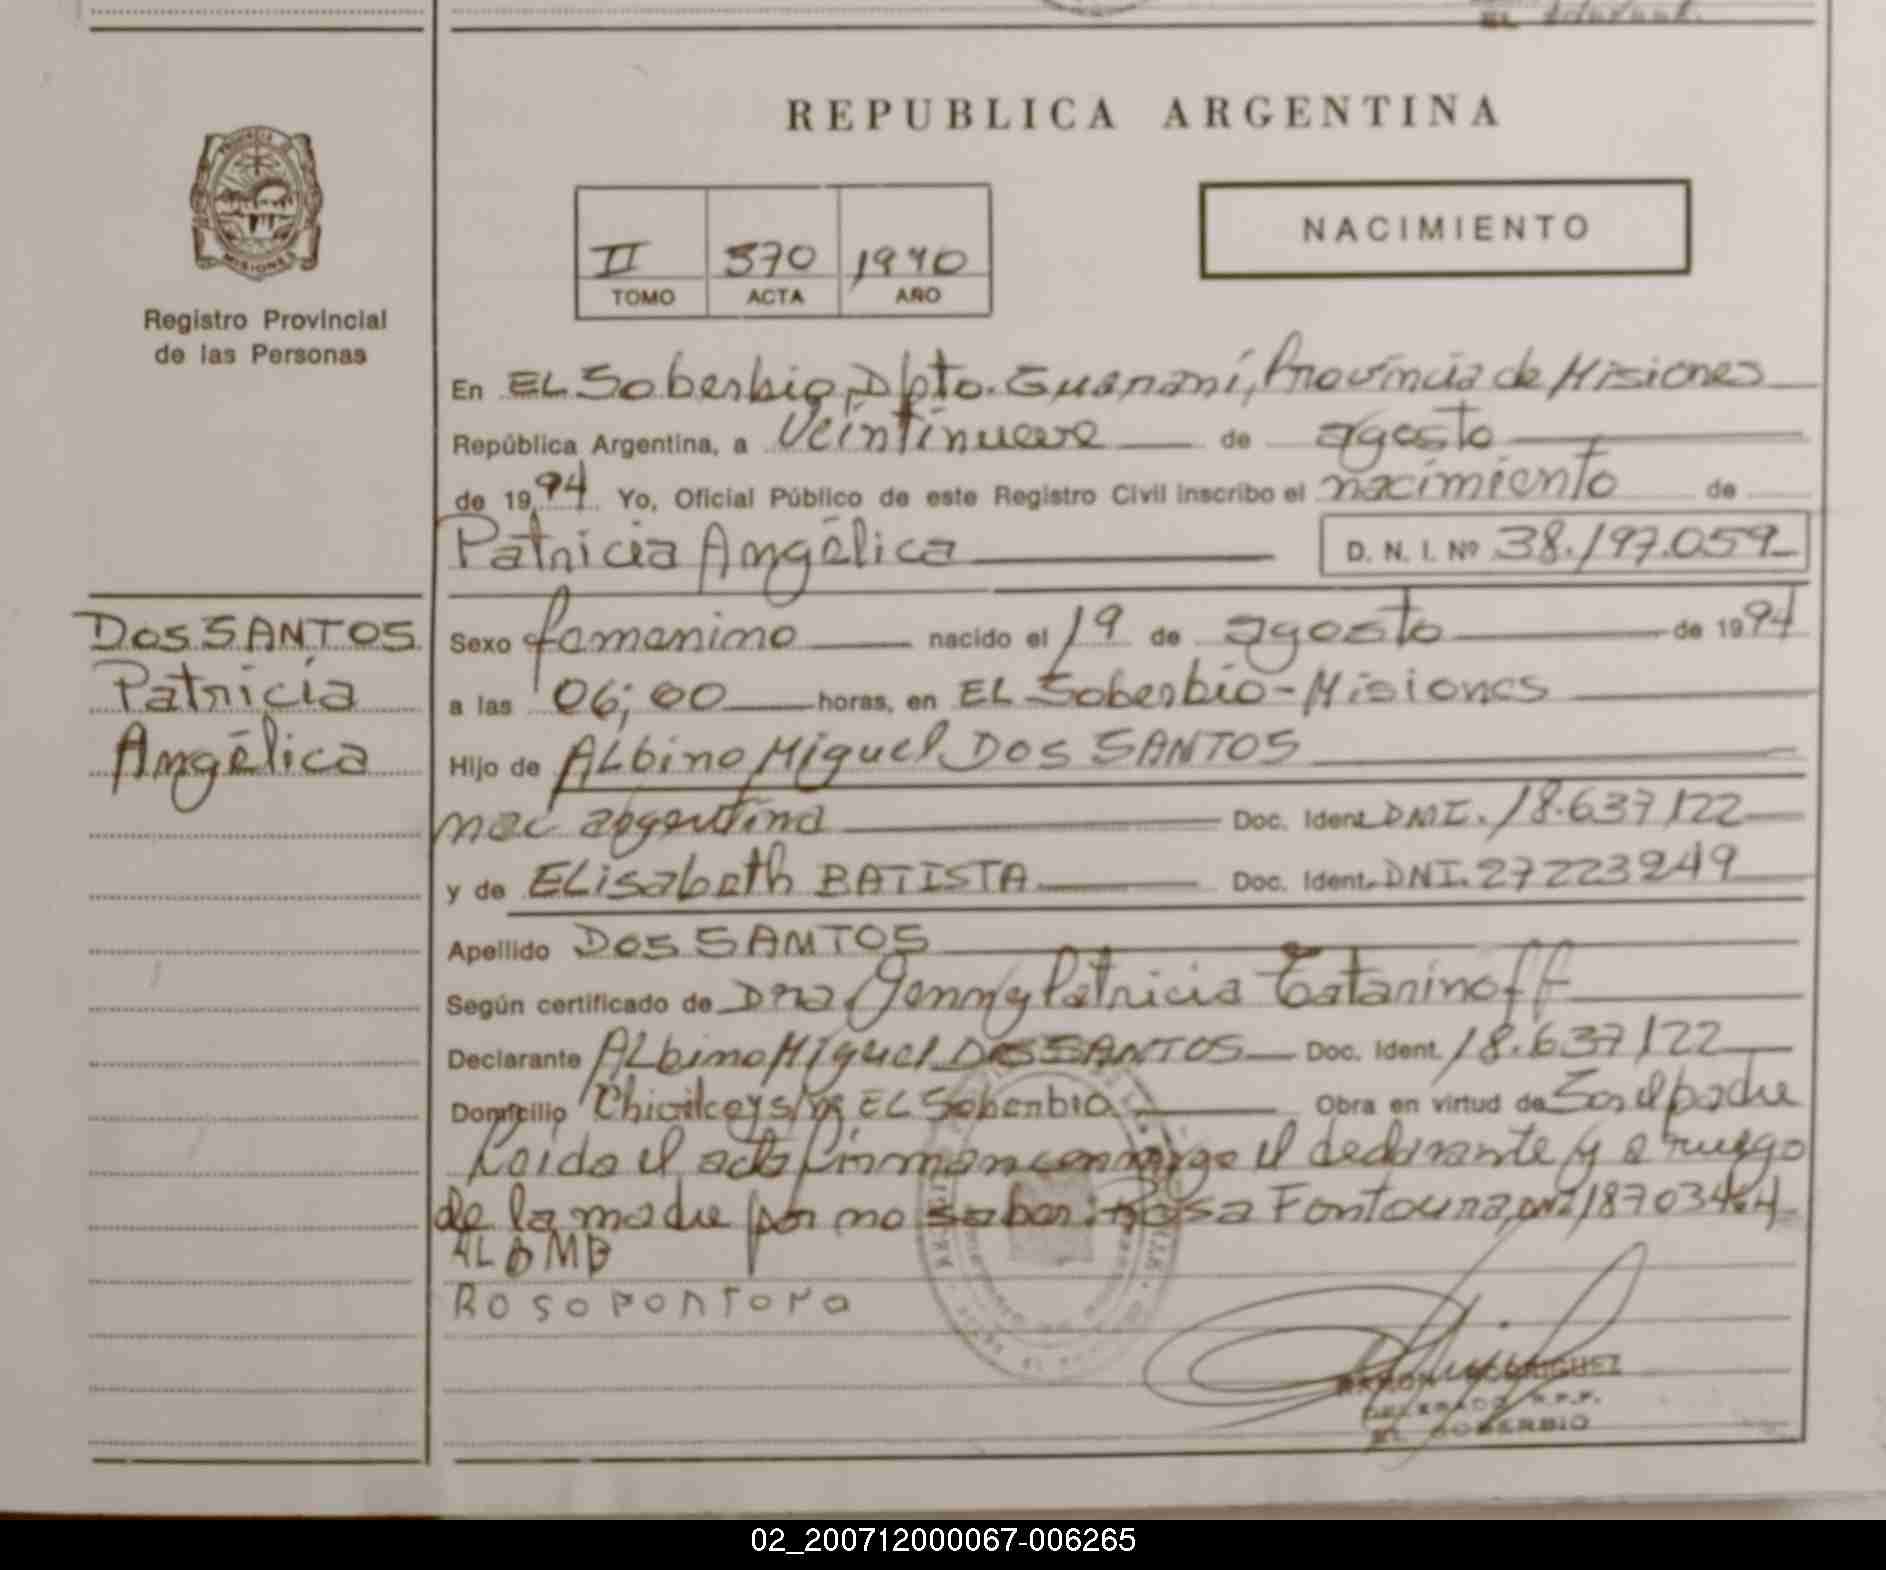 REPUBLICA ARGENTINA
PROVINCIA DE
MISIONES
Registro Provincial
de las Personas
II 370 1970
TOMO ACTA AÑO
NACIMIENTO
En EL Soberbio, Dpto. Guaraní, Provincia de Misiones
República Argentina, a Veintinueve de agosto
de 1994 Yo, Oficial Público de este Registro Civil inscribo el nacimiento de
Patricia Angélica D. N. I. Nº 38.197.059
DOS SANTOS
Patricia
Angélica
Sexo femenino nacido el 19 de agosto de 1994
a las 06;00 horas, en EL Soberbio-Misiones
Hijo de ALbino Miguel DOS SANTOS
nac argentina Doc. Ident. DNI. 18.637122
y de ELisabeth BATISTA Doc. Ident. DNI. 27223249
Apellido DOS SANTOS
Según certificado de Dra Jenny Patricia Tatarinoff
Declarante ALbino Miguel DOS SANTOS Doc. Ident. 18.637122
Domicilio EL Soberbio Obra en virtud de Ser el padre
Leida el acta firman conmigo el declarante y a ruego
de la madre por no saber: Rosa Fontoura, DNI 18703464
Rosopontora
RAMON RODRIGUEZ
DELEGADO R.P.P.
EL SOBERBIO
02_200712000067-006265